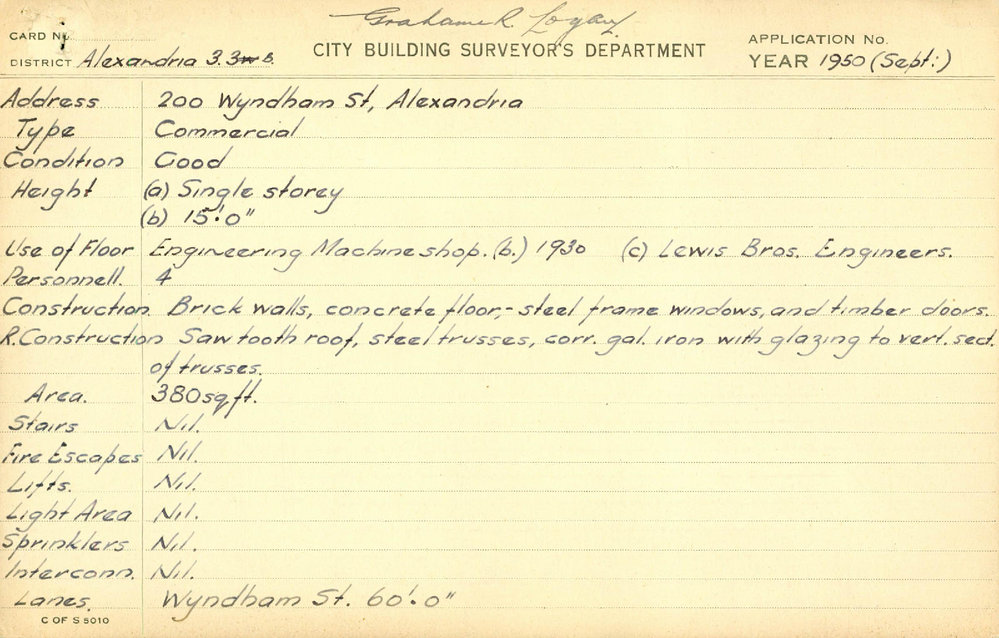 Grahame R. Logan
CARD No.
CITY BUILDING SURVEYOR'S DEPARTMENT
APPLICATION No.
DISTRICT Alexandria 3.3 B.
YEAR 1950 (Sept:)
Address 200 Wyndham St, Alexandria
Type Commercial
Condition Good
Height (a) Single storey
(b) 15'.0"
Use of Floor Engineering Machine shop. (b.) 1930 (c) Lewis Bros. Engineers.
Personnell. 4
Construction Brick walls, concrete floor,- steel frame windows, and timber doors.
R.Construction Saw tooth roof, steel trusses, corr. gal. iron with glazing to vert. sect.
of trusses.
Area. 380 sq ft.
Stairs Nil.
Fire Escapes Nil.
Lifts. Nil.
Light Area Nil.
Sprinklers Nil.
Interconn. Nil.
Lanes. Wyndham St. 60'.0"
C OF S 5010